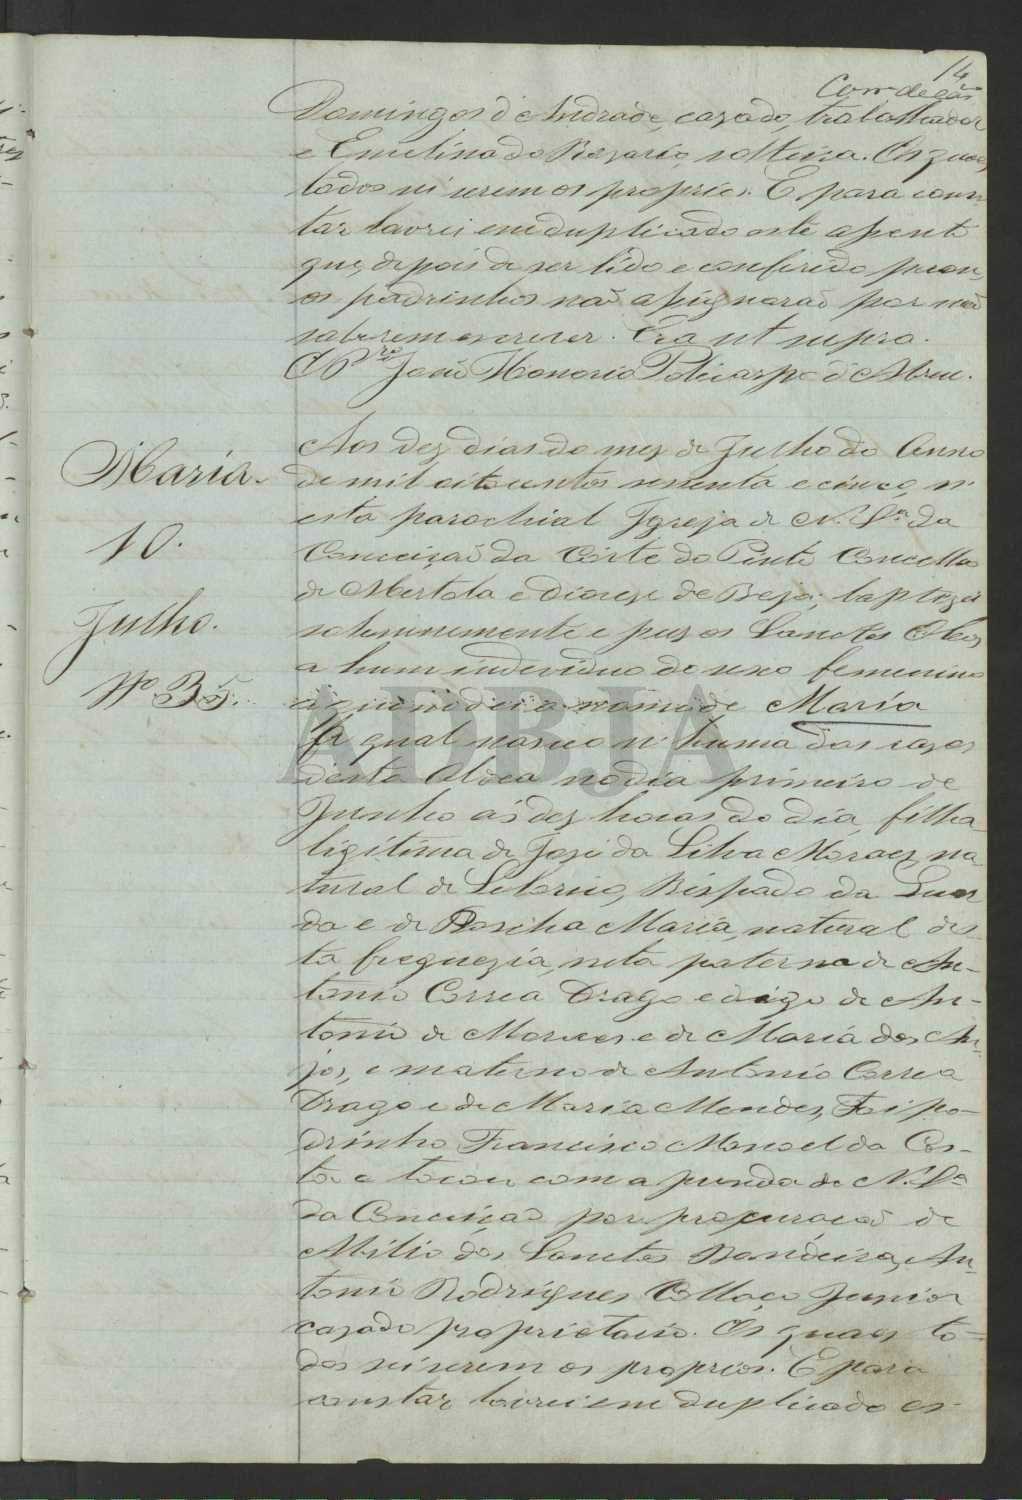 14
Domingos d'Andrade, cazado, trabalhador
e Emelina do Rozario, solteira. Os quaes
todos sei serem os proprios. E para cons
tar lavrei em duplicado este assento
que, depois de ser lido e conferido peran
os padrinhos não assignarão por não
saberem escrever. Era ut supra.
O P.re João Honorio Policarpo d'Abreu.
Maria.
10.
Julho.
Nº 35.
Aos dez dias do mez de Julho do Anno
de mil oitocentos sesenta e cinco, n'
esta parochial Igreja de N. S.ra da
Conceição da Côrte do Pinto Concelho
de Mertola e Diocese de Beja, baptizei
solemnemente e puz os Sanctos Oleos
a hum individuo do sexo femenino
a quem dei o nome de Maria
A qual nasceo n'huma das cazas
desta Aldea no dia primeiro de
Junho ás dez horas do dia, filha
ligitima de José da Silva Moraes, na
tural de Bispado da Guar
da e de Maria, natural des
ta freguezia, neta paterna de An-
tonio Correa Drago e digo de An-
tonio de Moraes e de Maria dos An-
jos, e materna de Antonio Correa
Drago e de Maria Mendes, Foi pa-
drinho Francisco Manoel da Cos-
ta e tocou com a prenda de N. S.ra
da Conceição por procuração de
dos Sanctos Bandeira, An-
tonio Rodrigues Collaço Junior
cazado proprietario. Os quaes to-
dos sei serem os proprios. E para
constar lavrei em duplicado es-
ADBJA